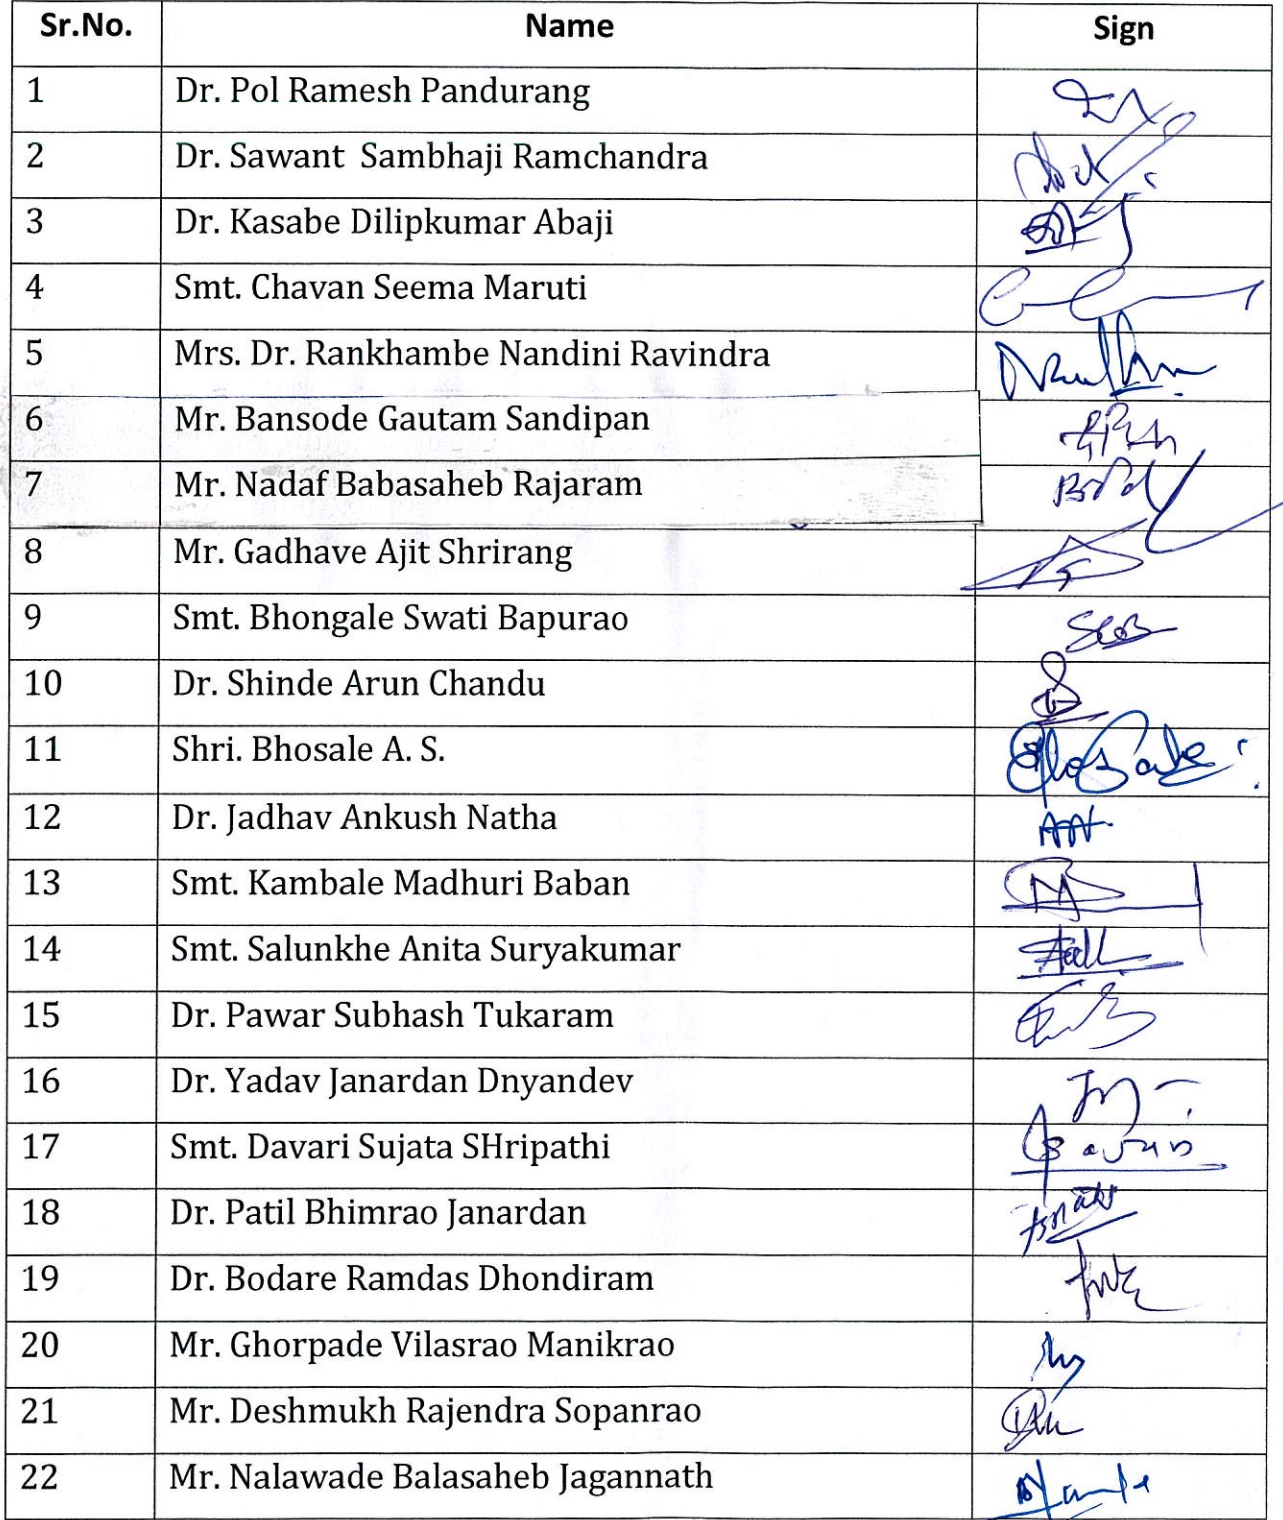 Sr.No. Name Sign
1 Dr. Pol Ramesh Pandurang
2 Dr. Sawant Sambhaji Ramchandra
3 Dr. Kasabe Dilipkumar Abaji
4 Smt. Chavan Seema Maruti
5 Mrs. Dr. Rankhambe Nandini Ravindra
6 Mr. Bansode Gautam Sandipan
7 Mr. Nadaf Babasaheb Rajaram
8 Mr. Gadhave Ajit Shrirang
9 Smt. Bhongale Swati Bapurao
10 Dr. Shinde Arun Chandu
11 Shri. Bhosale A. S.
12 Dr. Jadhav Ankush Natha
13 Smt. Kambale Madhuri Baban
14 Smt. Salunkhe Anita Suryakumar
15 Dr. Pawar Subhash Tukaram
16 Dr. Yadav Janardan Dnyandev
17 Smt. Davari Sujata SHripathi
18 Dr. Patil Bhimrao Janardan
19 Dr. Bodare Ramdas Dhondiram
20 Mr. Ghorpade Vilasrao Manikrao
21 Mr. Deshmukh Rajendra Sopanrao
22 Mr. Nalawade Balasaheb Jagannath